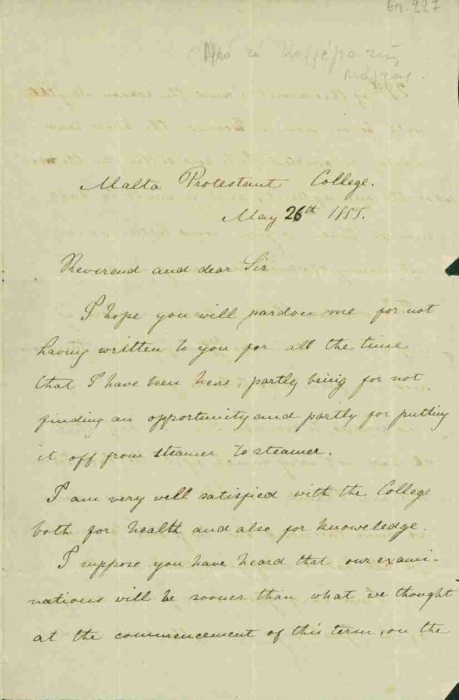 Επ. 227
Από το Κολλέγιο της
Μάλτας.
Malta Protestant College.
May 26th 1855.
Reverend and dear Sir
I hope you will pardon me for not
having written to you for all the time
that I have been here, partly being for not
finding an opportunity and partly for putting
it off from steamer to steamer.
I am very well satisfied with the College
both for health and also for knoweledge.
I suppose you have heard that our exami-
nations will be sooner than what we thought
at the commencement of this term, on the